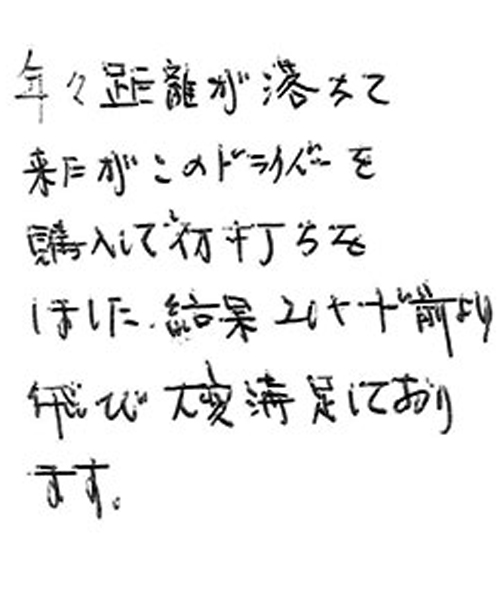 年々距離が落ちて
来たがこのドライバーを
購入して初打ちを
しました.結果20ヤード前より
飛び大変満足しており
ます。